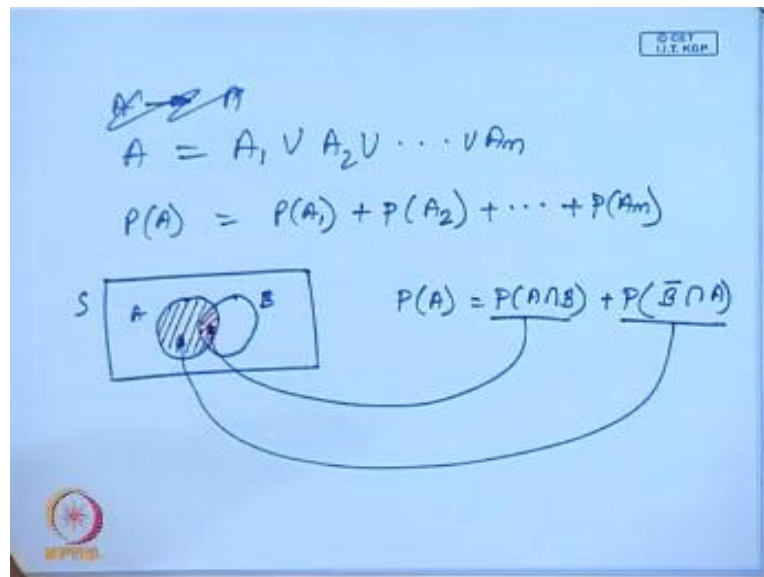 © CET
I.I.T. KGP
A = A₁ ∪ A₂ ∪ ··· ∪ Am
P(A) = P(A₁) + P(A₂) + ··· + P(Am)
S A B P(A) = P(A∩B) + P(B̅ ∩ A)